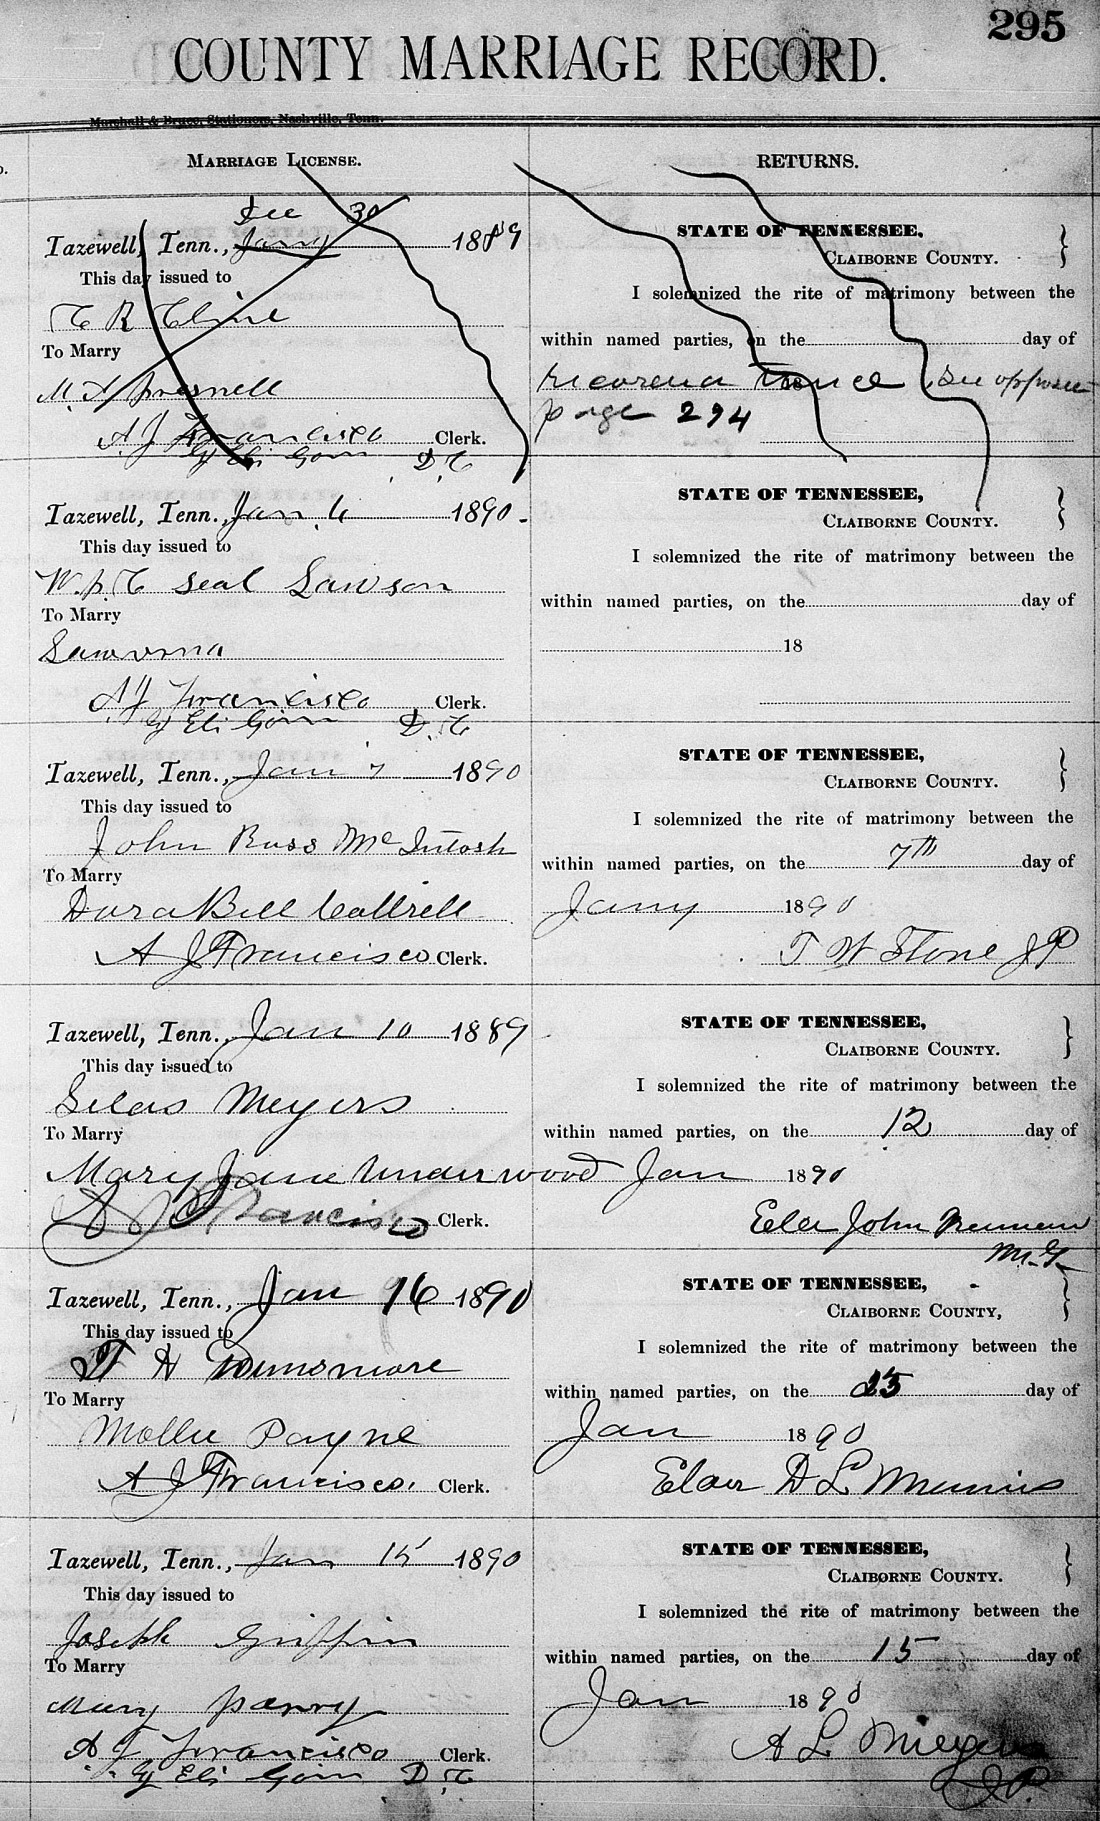 295
COUNTY MARRIAGE RECORD.
Marshall & Bruce, Stationers, Nashville, Tenn.
MARRIAGE LICENSE.
RETURNS.
Dec 30
Tazewell, Tenn., Jany 1889
This day issued to
C R Cline
To Marry
M.
A. J Francisco Clerk.
By Eli Goin D.C
STATE OF TENNESSEE,
CLAIBORNE COUNTY.
I solemnized the rite of matrimony between the
within named parties, on the day of
recorded twice See opposite
page 294
Tazewell, Tenn., Jan. 6 1890.
This day issued to
W. P. C Seal Lawson
To Marry
A J Francisco Clerk.
By Eli Goin D.C
STATE OF TENNESSEE,
CLAIBORNE COUNTY.
I solemnized the rite of matrimony between the
within named parties, on the day of
18
Tazewell, Tenn., Jan 7 1890
This day issued to
John Ross McIntosh
To Marry
Dora Bell Cottrell
A J Francisco Clerk.
STATE OF TENNESSEE,
CLAIBORNE COUNTY.
I solemnized the rite of matrimony between the
within named parties, on the 7th day of
Jany 1890
T W Stone J P
Tazewell, Tenn., Jan 10 1889
This day issued to
Silas Meyers
To Marry
Mary Jane Underwood
A J Francisco Clerk.
STATE OF TENNESSEE,
CLAIBORNE COUNTY.
I solemnized the rite of matrimony between the
within named parties, on the 12 day of
Jan 1890
Elder John Neuman
M.G.
Tazewell, Tenn., Jan 16 1890
This day issued to
T H Dunsmore
To Marry
Mollie Payne
A J Francisco. Clerk.
STATE OF TENNESSEE,
CLAIBORNE COUNTY,
I solemnized the rite of matrimony between the
within named parties, on the 23 day of
Jan 1890
Elder D L
Tazewell, Tenn., Jan 15 1890
This day issued to
Joseph Griffin
To Marry
Mary
A J Francisco Clerk.
By Eli Goin D.C
STATE OF TENNESSEE,
CLAIBORNE COUNTY.
I solemnized the rite of matrimony between the
within named parties, on the 15 day of
Jan 1890
A L Meyers
J P.